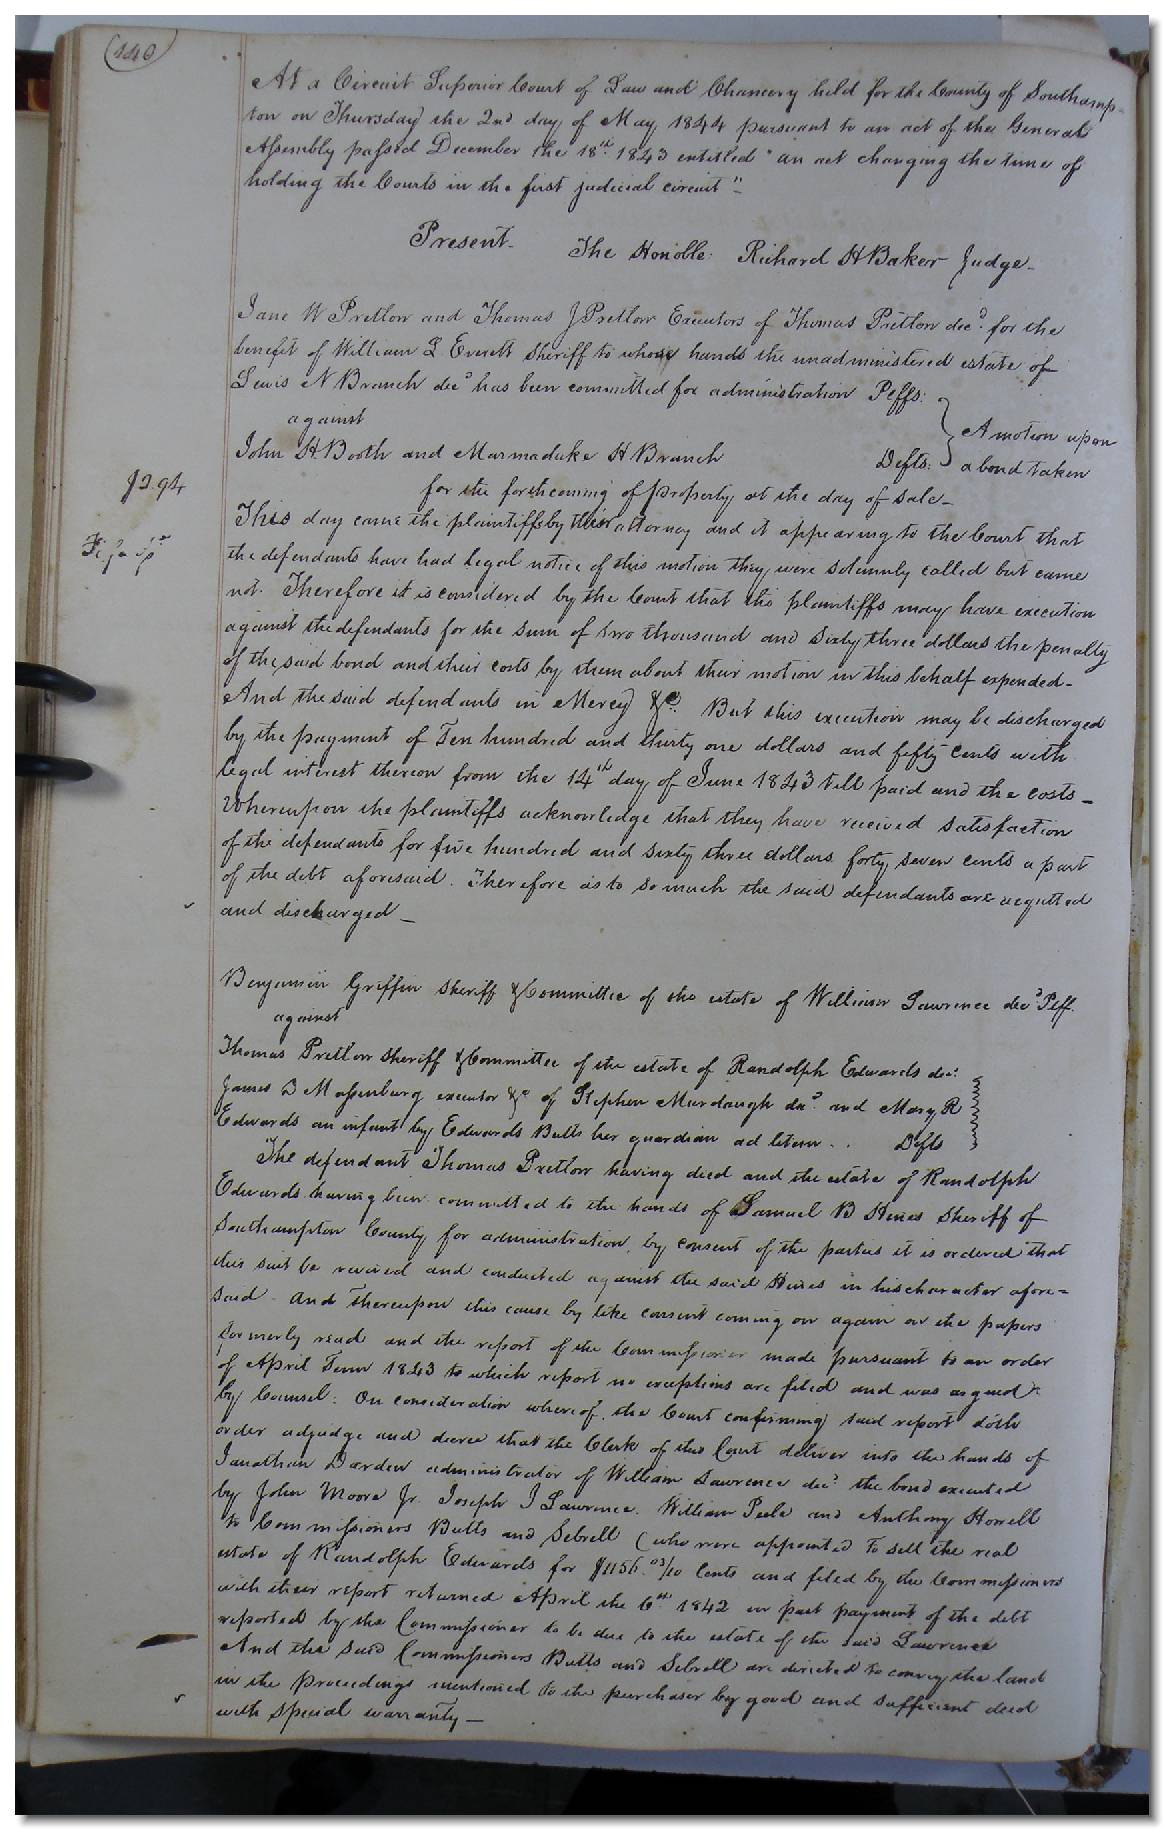 440
At a Circuit Superior Court of Law and Chancery held for the County of Southamp-
ton on Thursday the 2nd day of May 1844 pursuant to an act of the General
Assembly passed December the 18th 1843 entitled "an act changing the time of
holding the Courts in the first judicial circuit"
Present. The Honoble: Richard H Baker Judge.
Jane W Pretlow and Thomas J Pretlow Executors of Thomas Pretlow decd for the
benefit of William L Everett Sheriff to whose hands the unadministered estate of
Lewis N Branch decd has been committed for administration Plffs:
against
A motion upon
John H. Booth and Marmaduke H Branch Defts: a bond taken
for the forthcoming of property at the day of sale
$9.94
This day came the plaintiffs by their attorney and it appearing to the Court that
the defendants have had legal notice of this motion they were solemnly called but came
not. Therefore it is considered by the Court that the plaintiffs may have execution
against the defendants for the sum of two thousand and sixty three dollars the penalty
of the said bond and their costs by them about their motion in this behalf expended-
And the said defendants in Mercy &c. But this execution may be discharged
by the payment of Ten hundred and thirty one dollars and fifty cents with
legal interest thereon from the 14th day of June 1843 till paid and the costs-
Whereupon the plaintiffs acknowledge that they have received satisfaction
of the defendants for five hundred and sixty three dollars forty seven cents a part
of the debt aforesaid. Therefore as to so much the said defendants are acquitted
and discharged-
Benjamin Griffin Sheriff & Committee of the estate of William Lawrence decd Plff.
against
Thomas Pretlow Sheriff & Committee of the estate of Randolph Edwards decd
James D Massenburg executor &c of Stephen Murdaugh decd and Mary R
Edwards an infant by Edwards Butts her guardian ad litem.. Defts
The defendant Thomas Pretlow having died and the estate of Randolph
Edwards having been committed to the hands of Samuel B Hines Sheriff of
Southampton County for administration, by consent of the parties it is ordered that
this suit be revived and conducted against the said Hines in his character afore=
said. And thereupon this cause by like consent coming on again on the papers
formerly read and the report of the Commissioner made pursuant to an order
of April Term 1843 to which report no exceptions are filed and was argued
by Counsel: On consideration whereof, the Court confirming said report doth
order adjudge and decree that the Clerk of this Court deliver into the hands of
Jonathan Darden administrator of William Lawrence decd the bond executed
by John Moore Jr. Joseph J Lawrence, William Peele and Anthony Howell
to Commissioners Butts and Sebrell (who were appointed to sell the real
estate of Randolph Edwards for $1156.03/10 Cents and filed by the Commissioners
with their report returned April the 6th 1842 in part payment of the debt
reported by the Commissioner to be due to the estate of the said Lawrence
And the said Commissioners Butts and Sebrell are directed to convey the land
in the proceedings mentioned to the purchaser by good and sufficient deed
with special warranty-